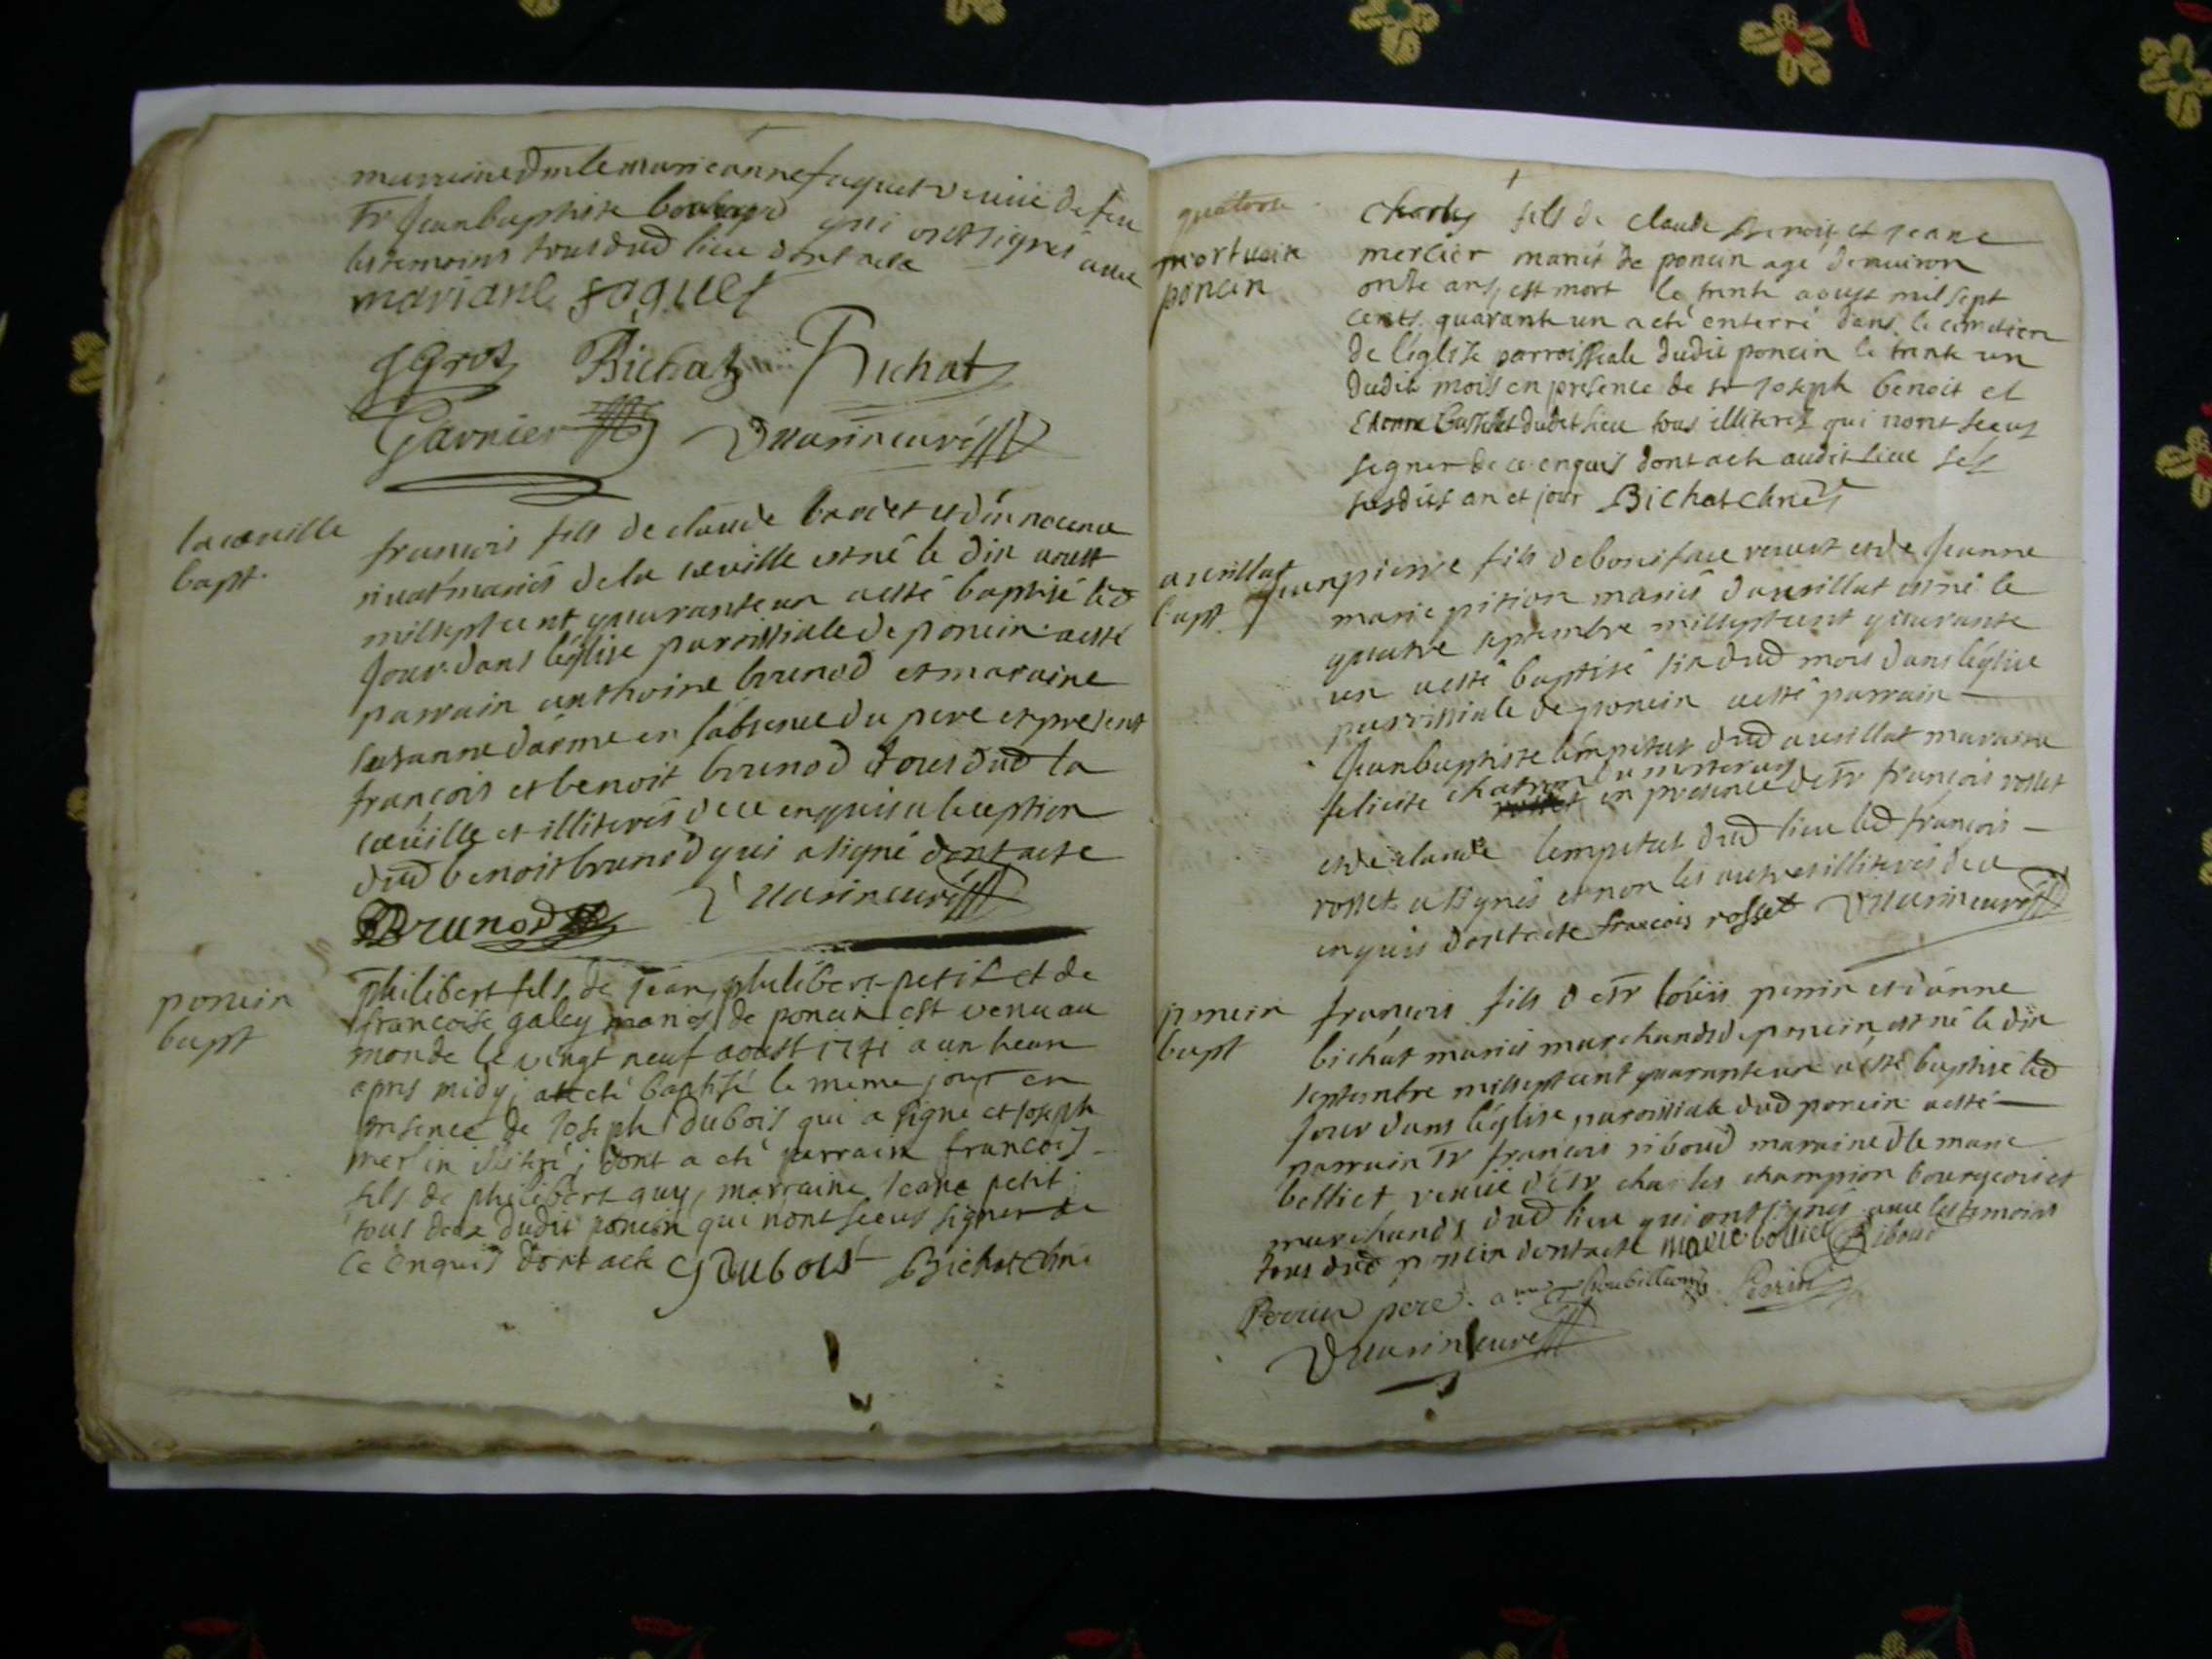 marraine dmlle marieanne faquet veuve de feu
sr Jean baptiste qui ont signés avec
les temoins tous dud lieu dont acte
mariane faguet
J Gros Bichat Bichat
Garnier Duarin curé
la cueille
bapt.
francois fils de claude bardet et dinnocence
rivat mariés de la cueille est né le dix aoust
mil sept cent quarante un a esté baptisé led
Jour dans léglise paroissiale de poncin a esté
parrain anthoine brunod et maraine
susanne darme en labsence du pere et present
françois et benoit brunod tous dud la
cueille et illiterés de ce enquis a lexeption
dud benoit brunod qui a signé dont acte
Brunod Duarin curé
poncin
bapt
philibert fils de jean philibert petit et de
francoise galey mariés de poncin est venu au
monde le vingt neuf aoust 1741 a un heure
apres midy; a eté baptisé le meme jour en
presence de Joseph Dubois qui a signé et joseph
merlin illitré; dont a eté parrain francois
fils de philibert guy, marraine Jeane petit
tous deux dudit poncin qui nont sceus signer de
ce enquis dont acte J Dubois Bichat
quatorze
mortuaire
poncin
Charles fils de claude Benoit et Jeane
mercier mariés de poncin agé denuiron
onze ans, est mort le trente aoust mil sept
cents quarante un a eté enterré dans le cimetiere
de léglise parroissiale dudit poncin le trente un
dudit mois en presence de sr Joseph benoit et
Etienne dudit lieu tous illiterez qui nont sceus
signer de ce enquis dont acte audit lieu les
susdits an et jour Bichat
auvillat
bapt
Jeanpierre fils de boniface et de Jeanne
marie pition mariés dauvillat est né le
quatre septembre mil sept cent quarante
un a esté baptisé six dud mois dans léglise
parissiale de poncin a esté parrain
Jeanbaptiste lempitat dud auvillat maraine
felicite chatron
en presence de sr françois rosset
et de claude lempitat dud lieu led françois
rosset a signés et non les autres illiterés de ce
enquis dont acte francois rosset Duarin curé
poncin
bapt
françois fils de sr loüis perrin et danne
bichat mariés marchands de poncin est né le dix
septembre mil sept cent quarante un a esté baptisé led
jour dans léglise paroissiale dud poncin a esté
parrain sr françois riboud marraine dlle marie
belliet veuüe de sr charles champion bourgeois et
marchands dud lieu qui ont signés avec les temoins
tous dud poncin dont acte marie belliet Riboud
Perrin pere. Perrin
Duarin curé